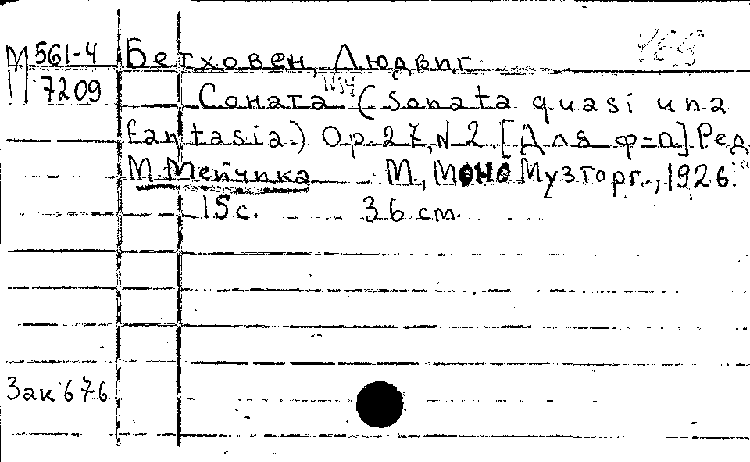 М 561-4
7209
Бетховен, Людвиг
Соната №14 (Sonata quasi una
fantasia.) Op. 27, N 2 [Для ф=п] Ред.
М. Мейчика М., Моно Музторг., 1926.
15 с. 36 cm.
Зак 676